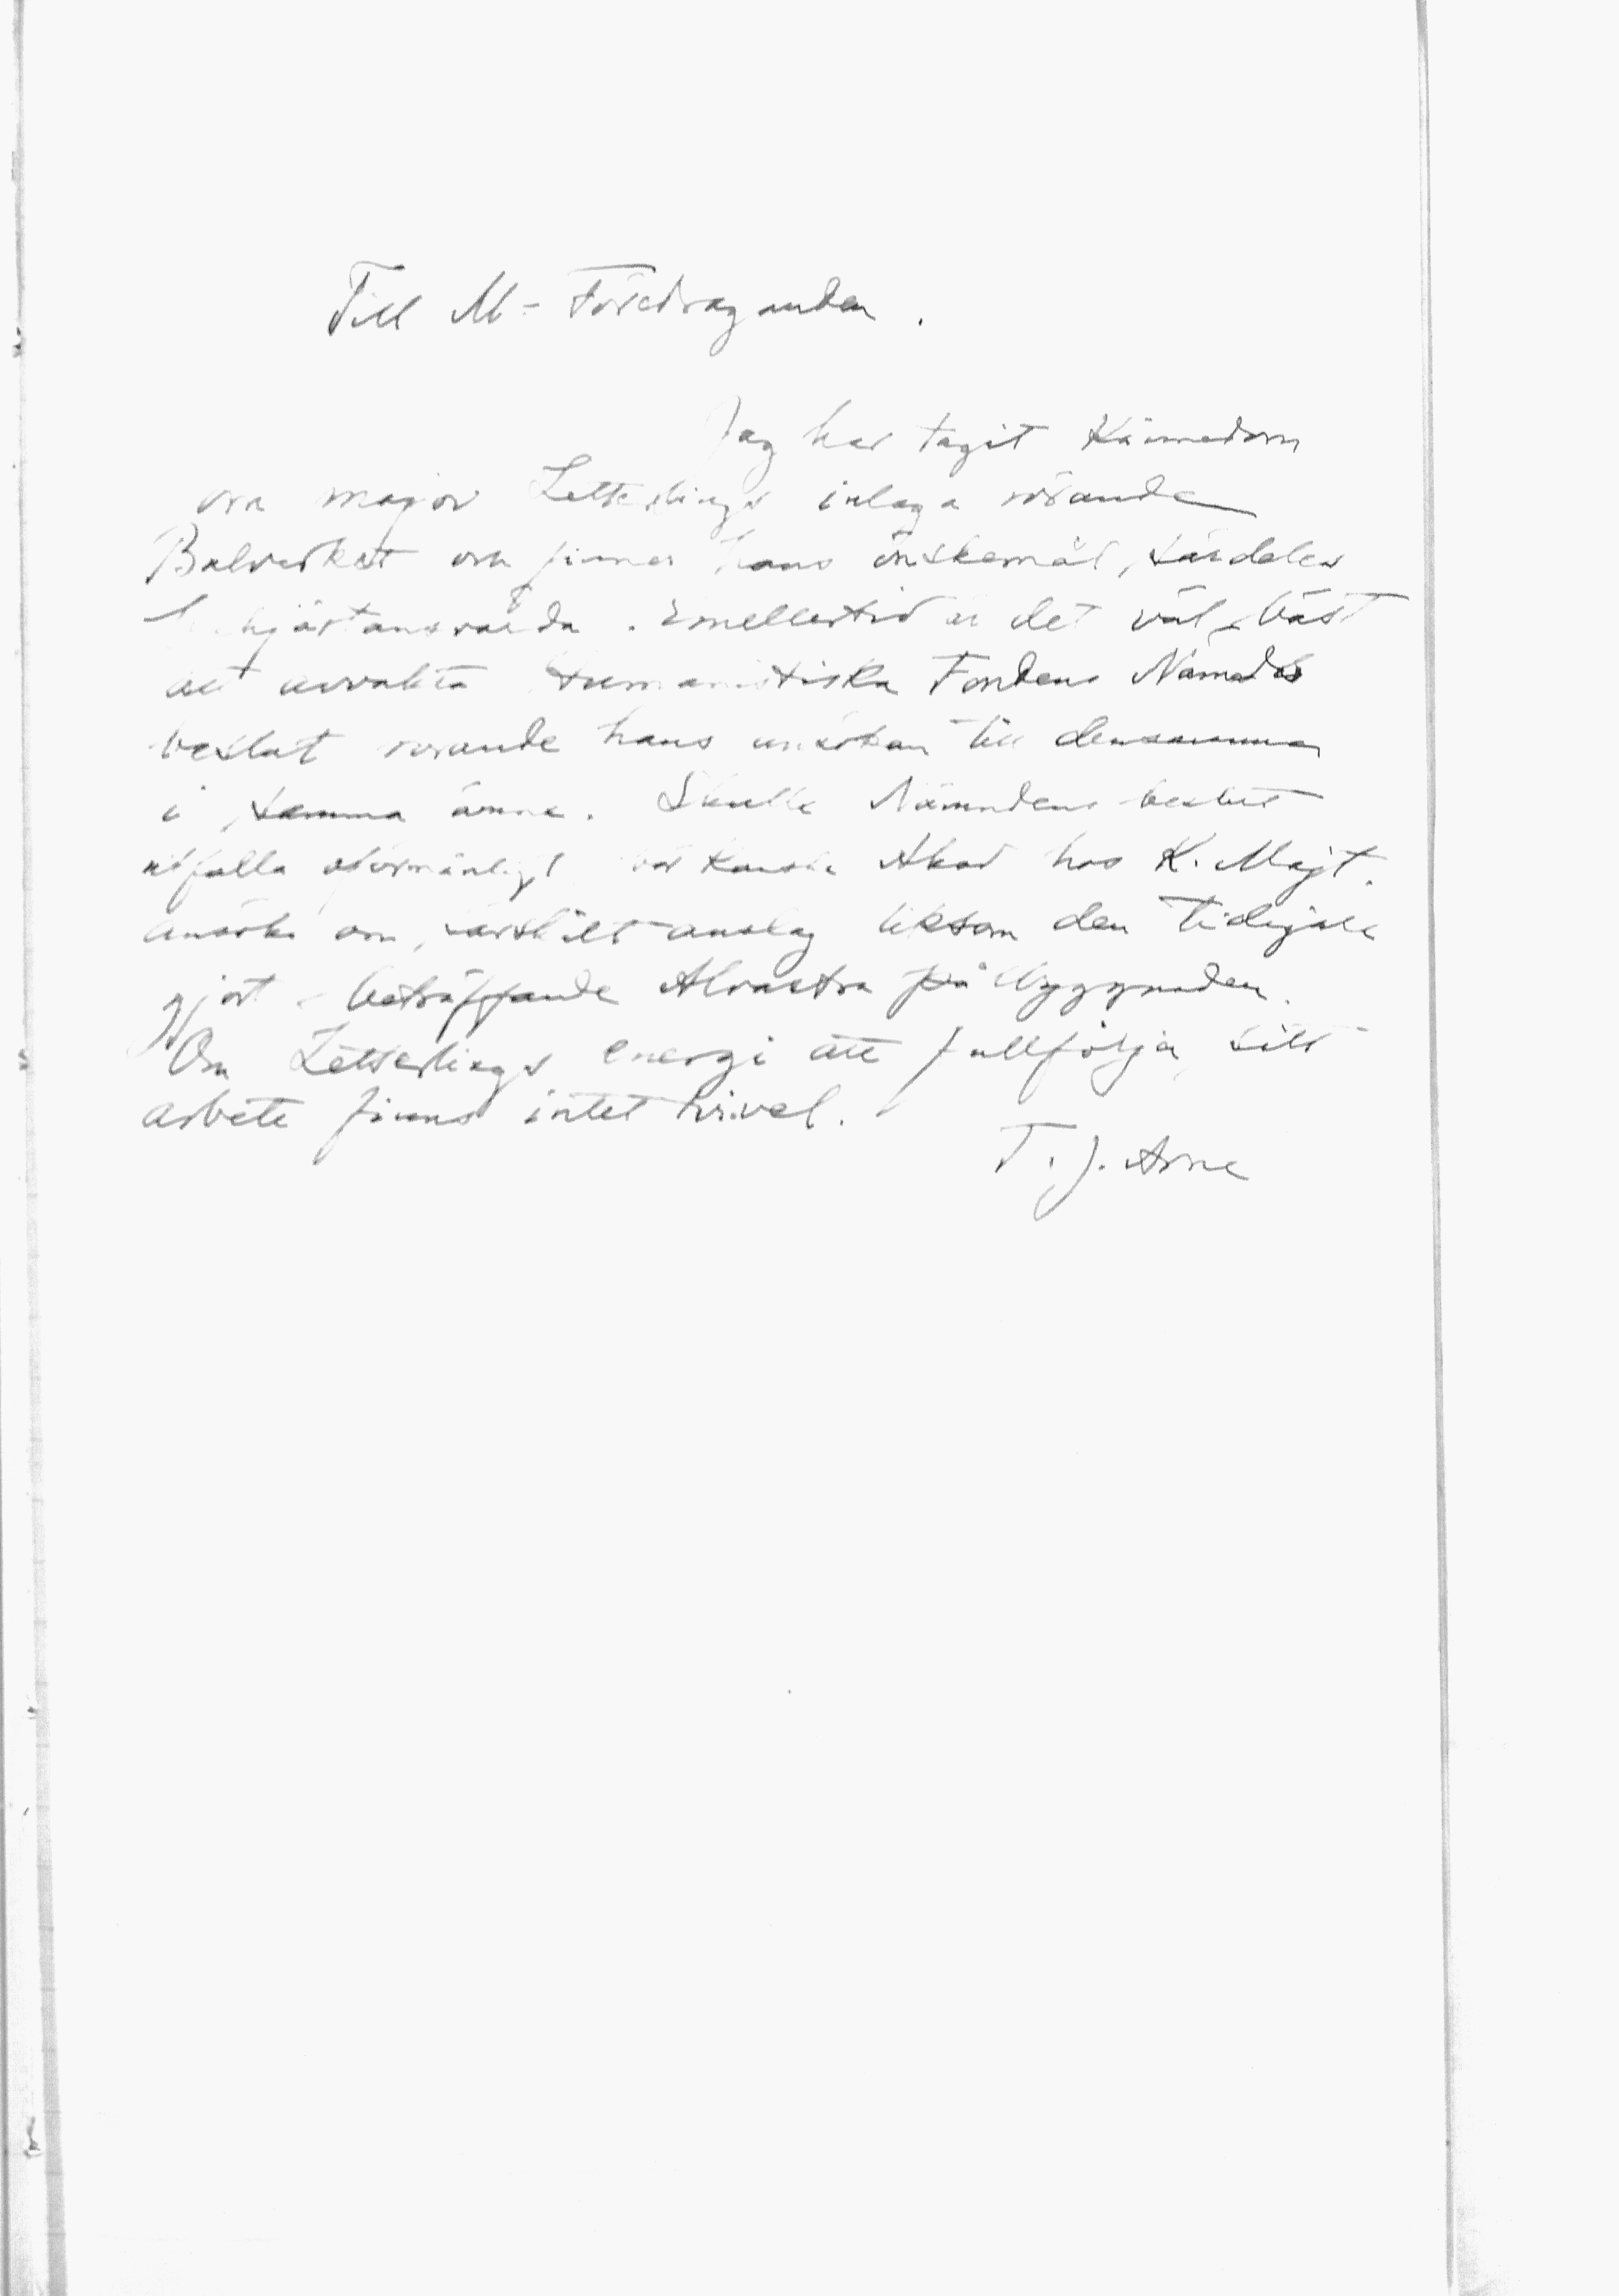 Till M-Föredraganden.
Jag har tagit kännedom
om major Zetterlings inlaga rörande
Bulverket och finner hans önskemål särdeles
behjärtansvärda. Emellertid är det väl bäst
att avvakta Humanistiska Fondens Nämnds
beslut rörande hans ansökan till densamma
i samma ämne. Skulle Nämndens beslut
utfalla oförmånligt bör kanske Akad hos K. Majt.
ansöka om särskilt anslag liksom den tidigare
gjort beträffande Alvastra påbyggnaden.
Om Zetterlings energi att fullfölja sitt
arbete finns intet tvivel.
T. J. Arne